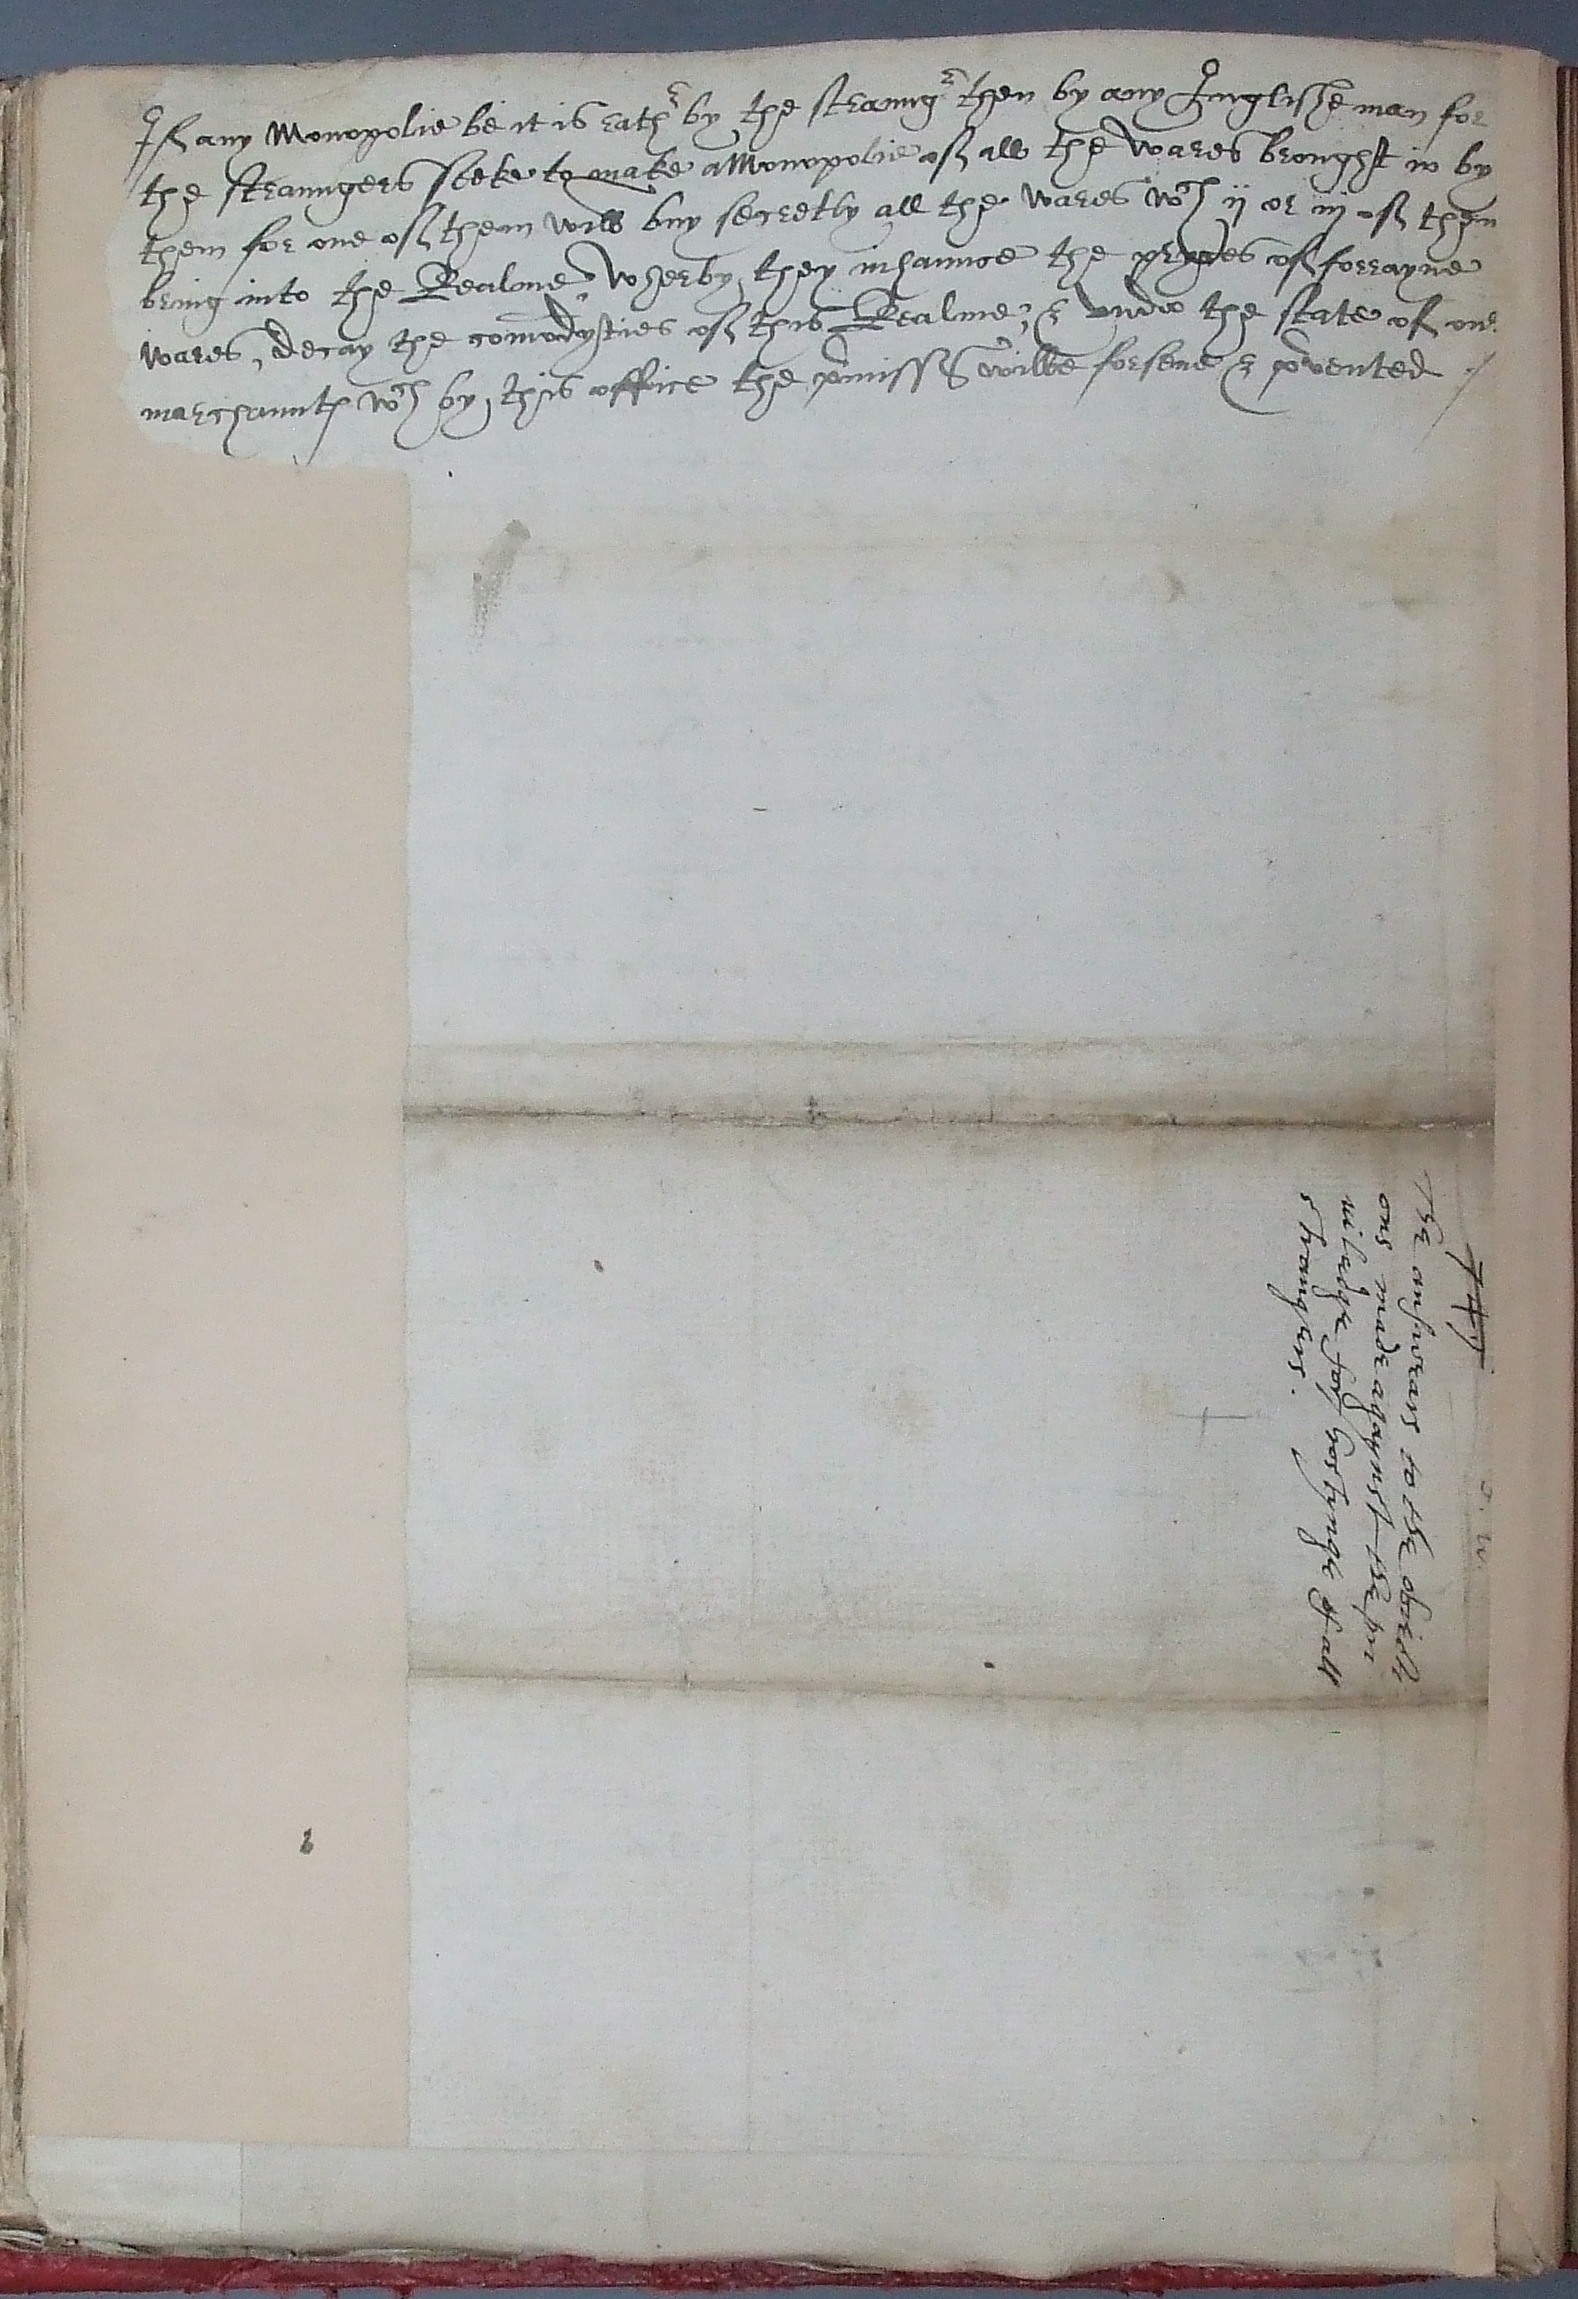 If any Monopolie be it is rathr by the straungr then by any Inglisshe man for
the straungers seeke to make a Monopolie of all the wares browght in by
them for one of them will buy secretly all the wares wch ij or iij of them
bring into the Realme, wherby they inhaunce the pryces of forrayne
wares, decay the comodysties of this Realme, & undoe the state of our
marchaunts wch by this office the pmisses wilbe forsene & pvented
The answears to the obiecti
ons made agaynst the pri
viledge for hostynge of all
straungers.